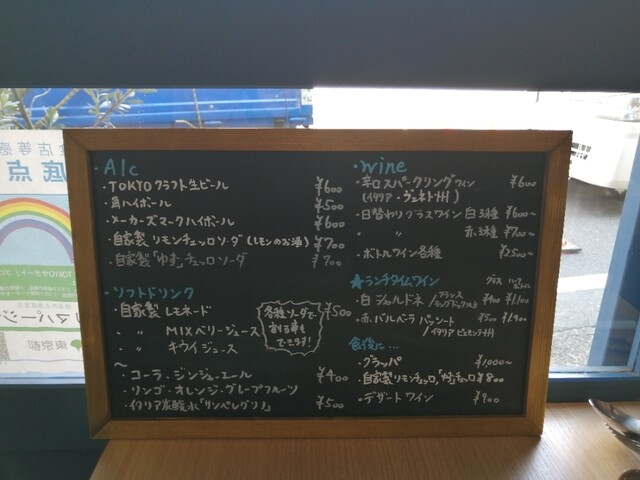 ・Alc
・TOKYOクラフト生ビール ¥600
・角ハイボール ¥500
・メーカーズマークハイボール ¥600
・自家製リモンチェッロソーダ(レモンのお酒) ¥700
・自家製「ゆず」チェッロソーダ ¥700
・ソフトドリンク
・自家製 レモネード ¥500
・〃 〃 MIXベリージュース
・〃 〃 キウイジュース
各種ソーダで
割る事も
できます!
〜
・コーラ・ジンジャーエール ¥400
・リンゴ・オレンジ・グレープフルーツ
・イタリア炭酸水「サンペレグリノ」 ¥500
・wine
・辛口スパークリングワイン ¥600
(イタリア・ヴェネト州)
・日替わりグラスワイン 白3種 ¥600〜
〃 赤3種 ¥700〜
・ボトルワイン各種 ¥2500〜
★ランチタイムワイン グラス ハーフボトル
・白 シャルドネ /フランス ¥400 ¥1,100
・赤 バルベーラ パッシート ¥500 ¥1,900
/イタリア ピエモンテ州
食後に…
・グラッパ ¥1,000〜
・自家製リモンチェッロ,「ゆず」チェッロ ¥800
・デザートワイン ¥900
底点
東京都